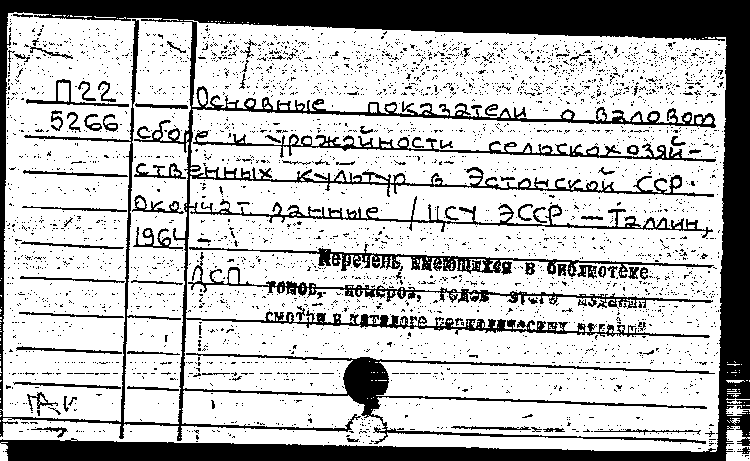 П22
5266
Основные показатели о валовом
сборе и урожайности сельскохозяй-
ственных культур в Эстонской ССР.
Окончат данные / ЦСУ ЭССР. — Таллин,
1964 –
ДСП.
Перечень имеющихся в библиотеке
томов, номеров, годов этого издания
смотри в каталоге периодических изданий